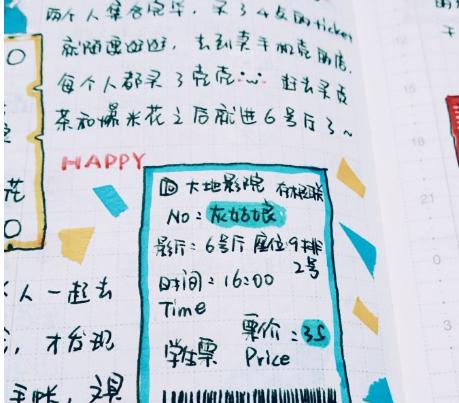 两个人集合完毕，买了4点的ticket
就随便逛逛，去到卖手机壳的店，
每个人都买了壳壳
赶去买皮
茶和爆米花之后就进6号厅了~
HAPPY
大地影院 存根联
No：灰姑娘
影厅：6号厅 座位9排
2号
时间：16:00
Time
票价：35
学生票 Price
花
人一起去
才发现
手账，文具
12
15
18
21
0
3